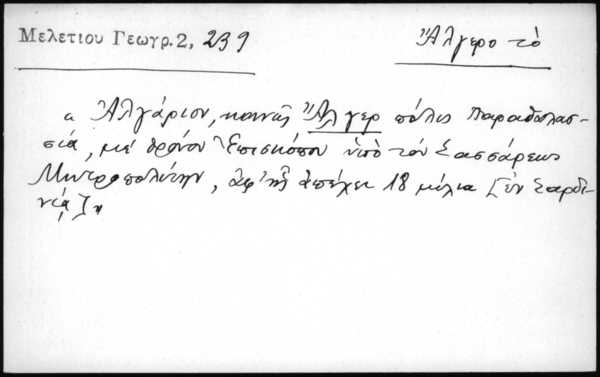 Μελετίου Γεωγρ. 2, 239
Ἄλγερο τὸ
" Ἀλγάριον, κοινῶς Ἄλγερ πόλις παραθαλασ-
σία, μὲ θρόνον Ἐπισκόπου ὑπὸ τὸν Σασσάρεως
Μητροπολίτην, ἀφ' ἧς ἀπέχει 18 μίλια [ἐν Σαρδι-
νίᾳ]"